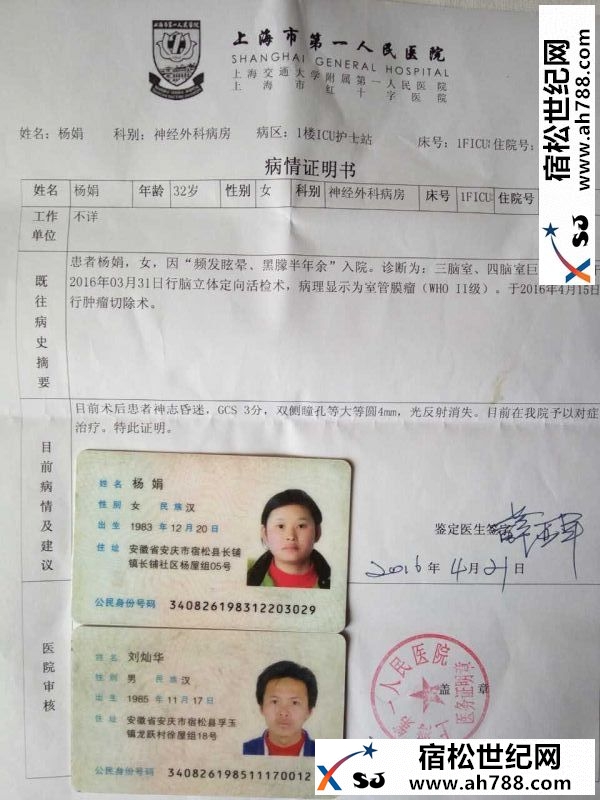 宿松世纪网
www.ah788.com
XSJ
上海市第一人民医院
SHANGHAI GENERAL HOSPITAL
上海交通大学附属第一人民医院
上海市红十字医院
姓名：杨娟 科别：神经外科病房 病区：1楼ICU护士站 床号：1FICU 住院号：
病情证明书
姓名 杨娟 年龄 32岁 性别 女 科别 神经外科病房 床号 1FICU 住院号
工作单位 不详
既往病史摘要
患者杨娟，女，因“频发眩晕、黑朦半年余”入院。诊断为：三脑室、四脑室巨
2016年03月31日行脑立体定向活检术，病理显示为室管膜瘤（WHO II级）。于2016年4月15日
行肿瘤切除术。
目前病情及建议
目前术后患者神志昏迷，GCS 3分，双侧瞳孔等大等圆4mm，光反射消失。目前在我院予以对症
治疗。特此证明。
鉴定医生签字
2016年4月21日
姓名 杨娟
性别 女 民族 汉
出生 1983年12月20日
住址 安徽省安庆市宿松县长铺
镇长铺社区杨屋组05号
公民身份号码 340826198312203029
医院审核
盖章
一人民医院
医务证明章
姓名 刘灿华
性别 男 民族 汉
出生 1985年11月17日
住址 安徽省安庆市宿松县孚玉
镇龙跃村徐屋组18号
公民身份号码 340826198511170012
XSJ
宿松世纪网
www.ah788.com